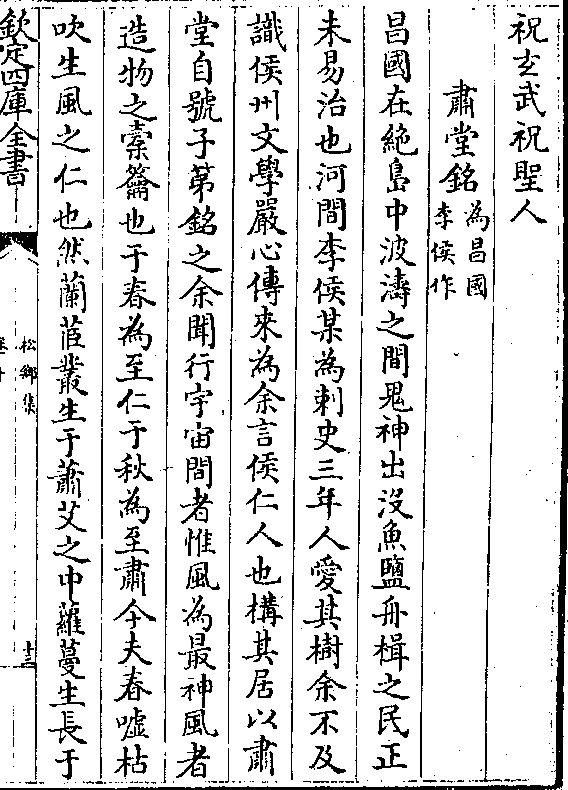 祝玄武祝聖人
肅堂銘為昌國李侯作
昌國在絶島中波濤之間鬼神出没魚鹽舟楫之民正
未易治也河間李侯某為刺史三年人愛其樹余不及
識侯州文學嚴心傳來為余言侯仁人也構其居以肅
堂自號子第銘之余聞行宇宙間者惟風為最神風者
造物之槖籥也于春為至仁于秋為至肅今夫春嘘枯
吹生風之仁也然蘭茝叢生于蕭艾之中蘿蔓生長于
欽定四庫全書
松鄉集
十三